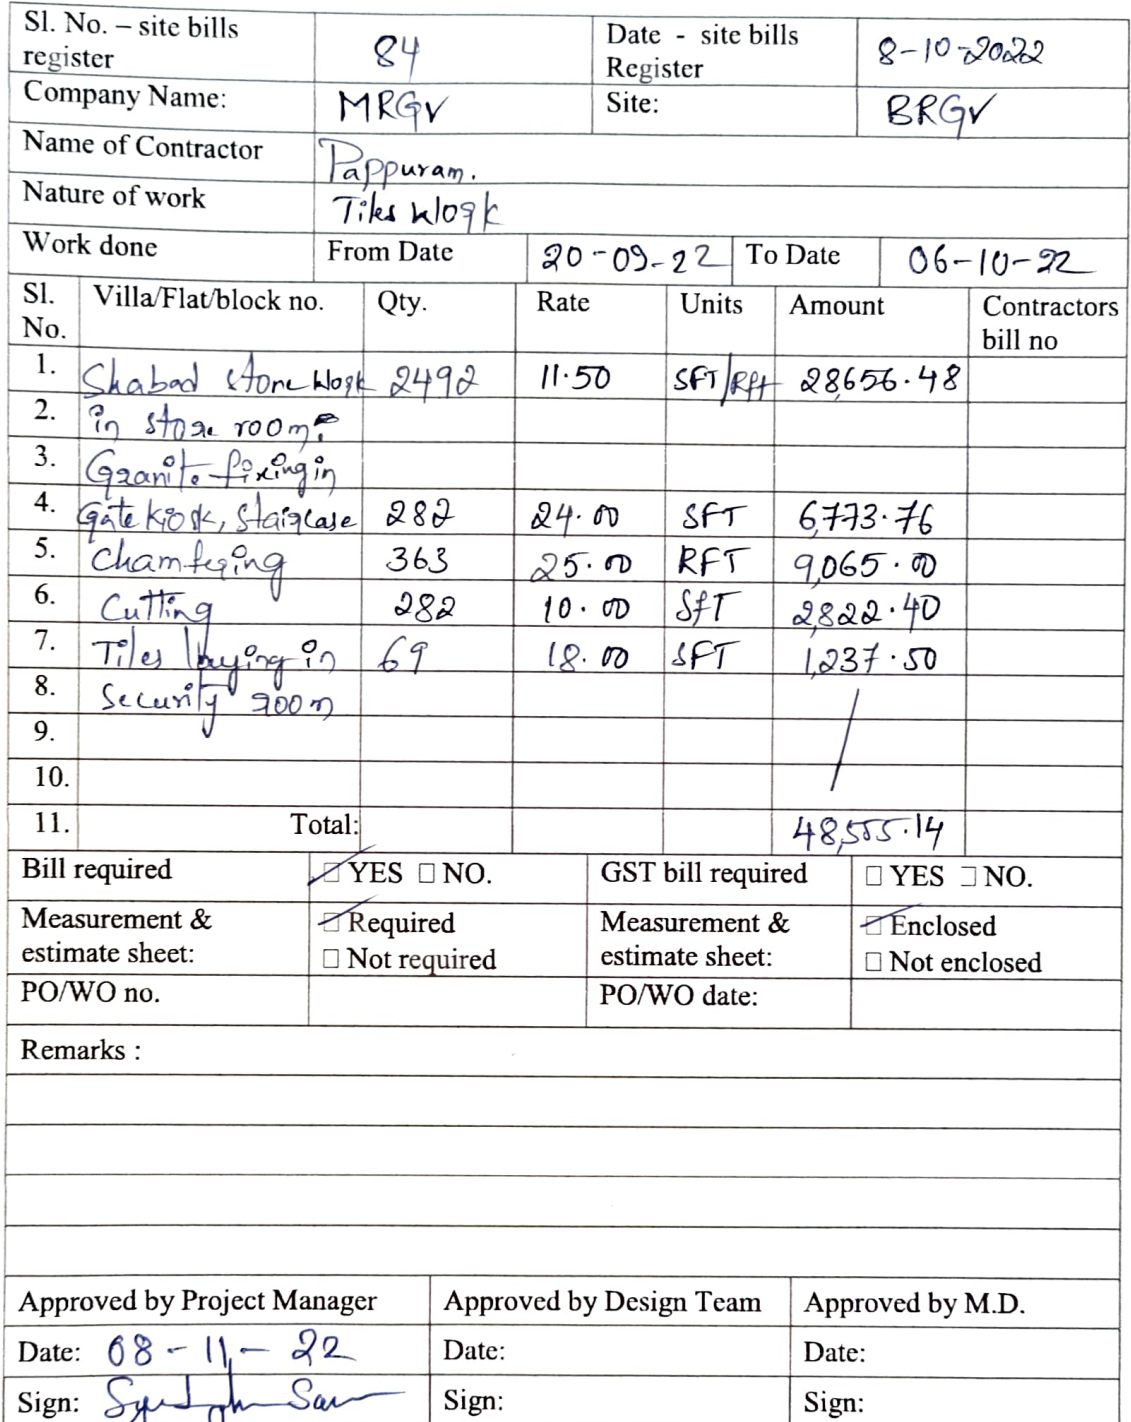 Sl. No. – site bills register 84 Date - site bills Register 8-10-2022
Company Name: MRGV Site: BRGV
Name of Contractor Pappuram.
Nature of work Tiles work
Work done From Date 20-09-22 To Date 06-10-22
Sl. No. Villa/Flat/block no. Qty. Rate Units Amount Contractors bill no
1. Shabad stone work 2492 11.50 SFT/Rft 28,656.48
2. in store room.
3. Granite fixing in
4. Gate kiosk, Staircase 282 24.00 SFT 6,773.76
5. Chamfering 363 25.00 RFT 9,065.00
6. Cutting 282 10.00 SFT 2,822.40
7. Tiles laying in 69 18.00 SFT 1,237.50
8. Security room
9.
10.
11. Total: 48,555.14
Bill required ☑ YES ☐ NO. GST bill required ☐ YES ☐ NO.
Measurement & estimate sheet: ☑ Required ☐ Not required Measurement & estimate sheet: ☑ Enclosed ☐ Not enclosed
PO/WO no. PO/WO date:
Remarks :
Approved by Project Manager Approved by Design Team Approved by M.D.
Date: 08-11-22 Date: Date:
Sign: Sign: Sign: